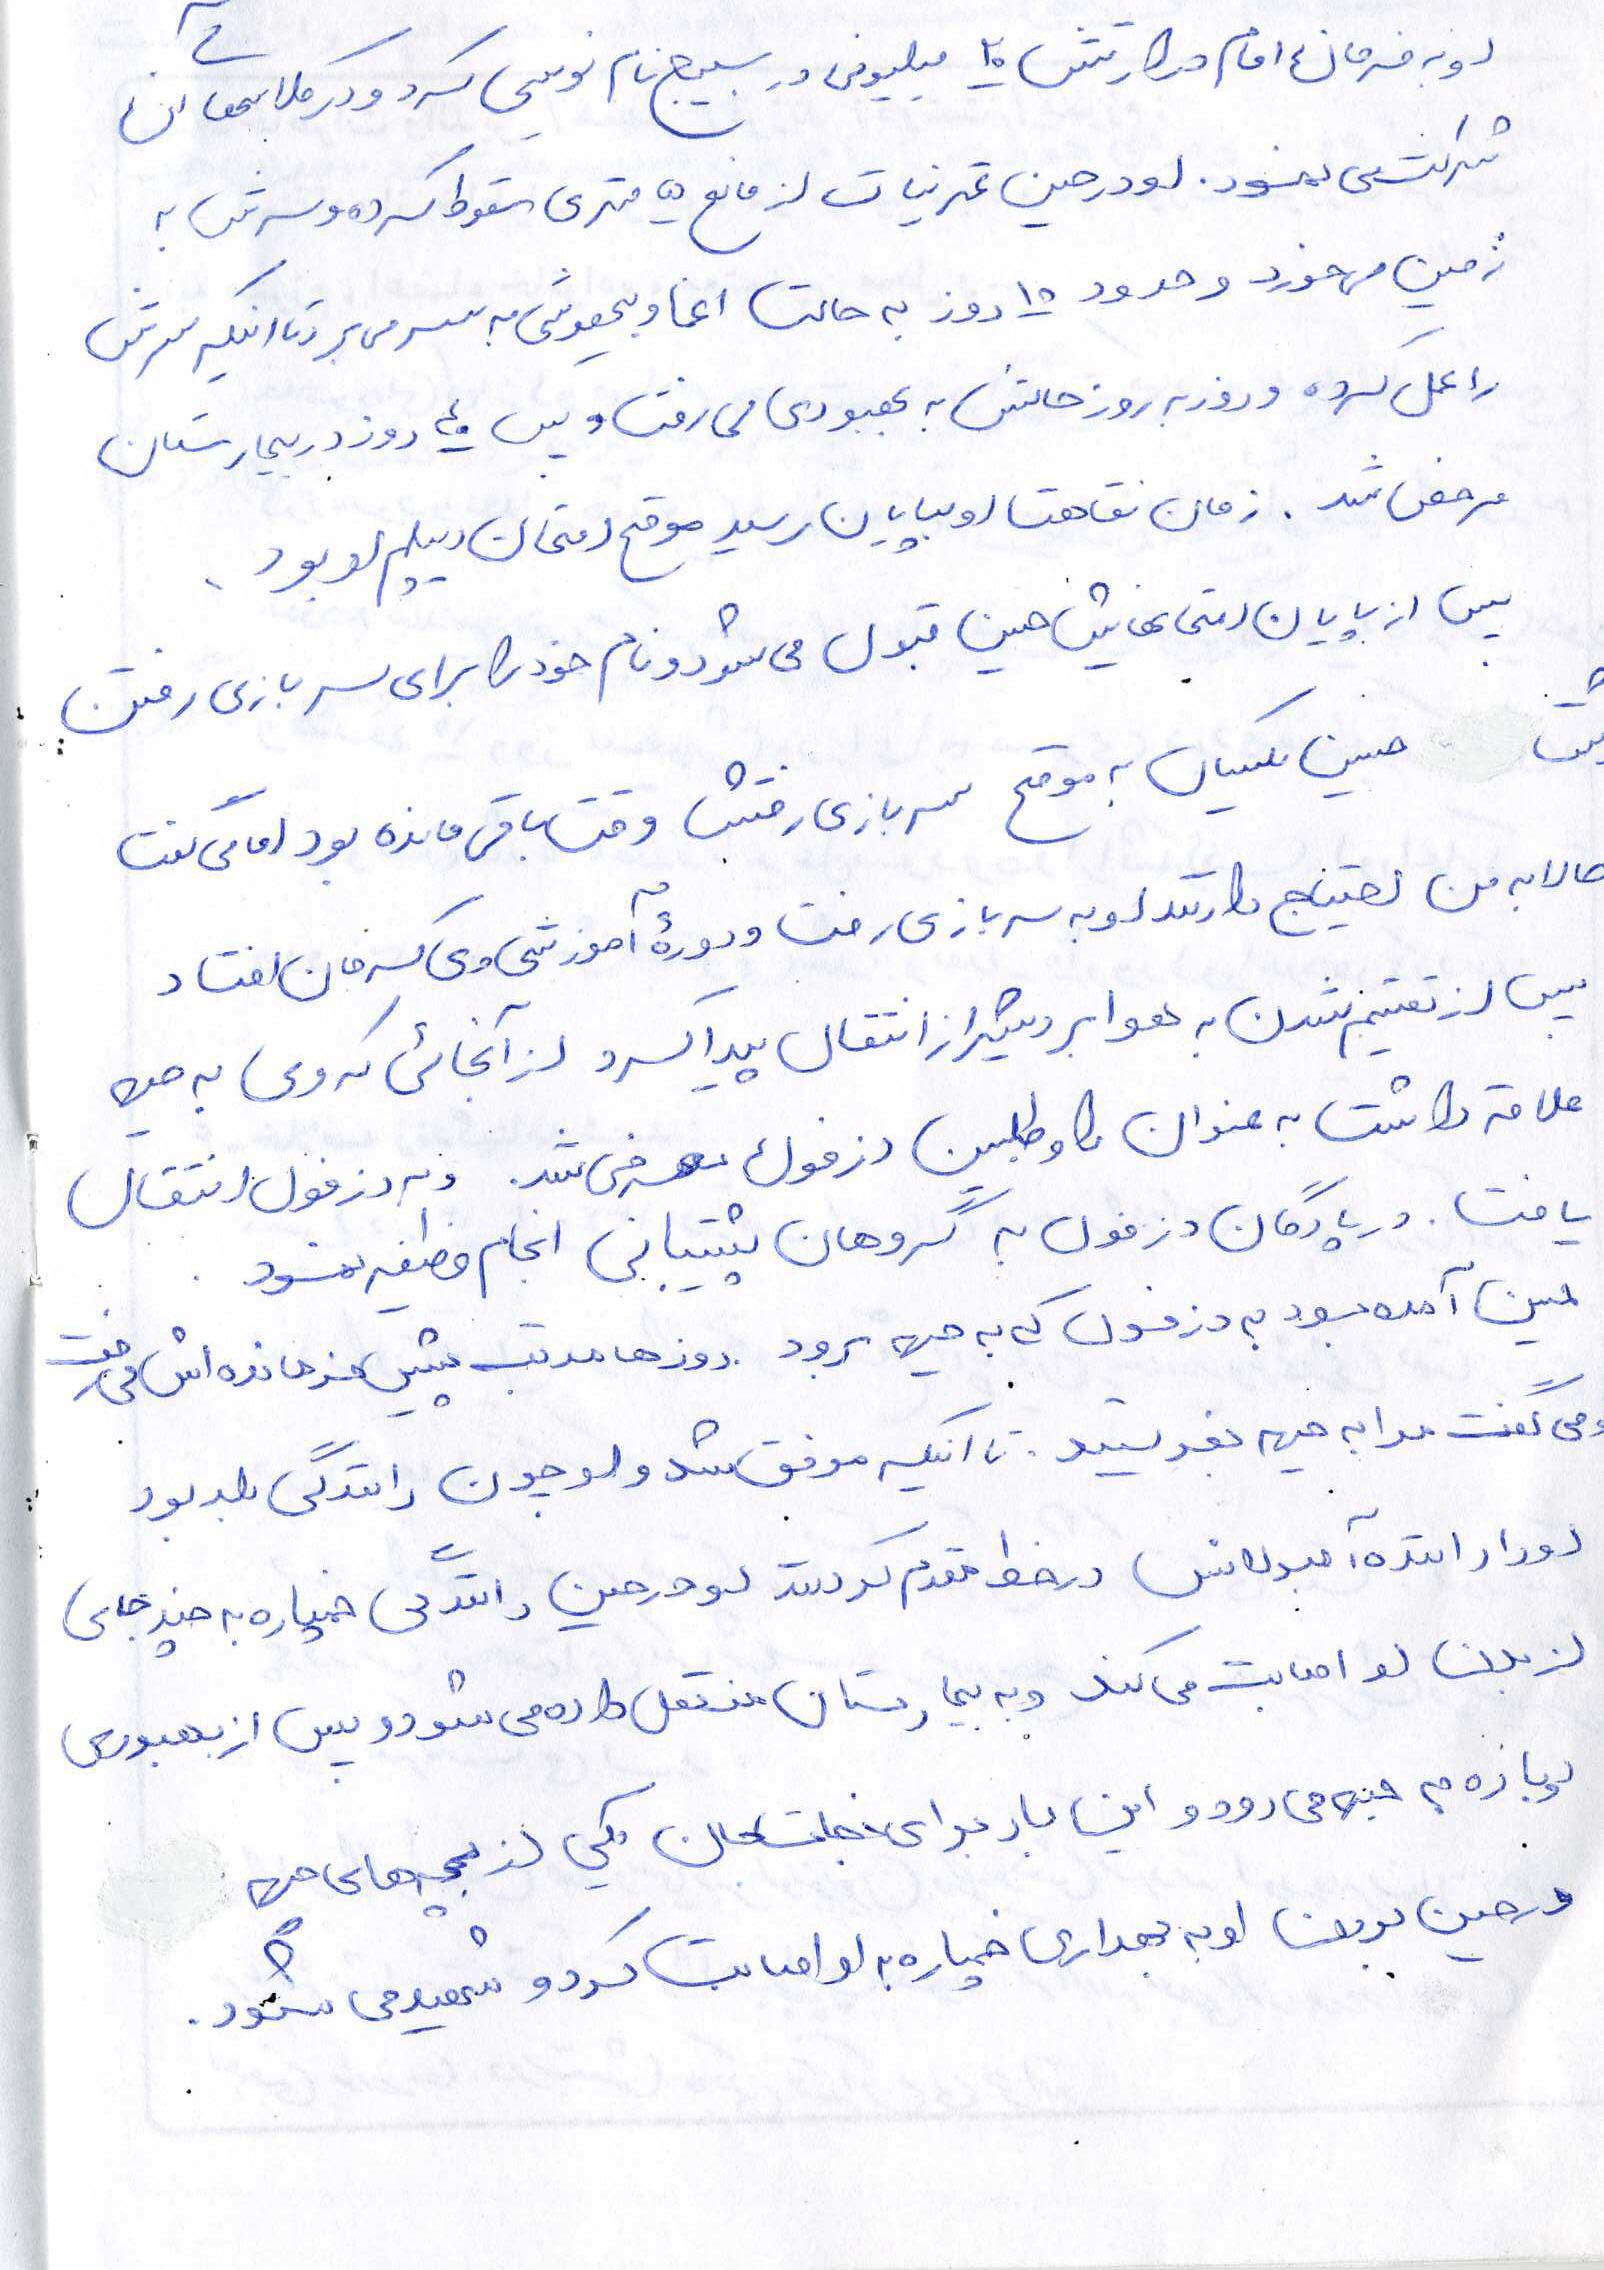 او به فرمان امام در ارتش ۲۰ میلیونی در بسیج نام نویسی کرد و در کلاسهای آن
شرکت می نمود. او در حین تمرینات از مانع ۵ متری سقوط کرده و سرش به
زمین می خورد و حدود ۱۵ روز به حالت اغما و بیهوشی به سر می برد تا اینکه سرش
را عمل کرده و روز به روز حالتش به بهبودی می رفت و پس ۴۵ روز در بیمارستان
مرخص شد. زمان نقاهت او بپایان رسید موقع امتحان دیپلم او بود.
پس از پایان امتحانهایش حسین قبول می شود و نام خود را برای سربازی رفتن
حسین یکسال به موقع سربازی رفتنش وقت باقی مانده بود اما می گفت
حالا به من احتیاج دارند او به سربازی رفت و دورهٔ آموزشی وی کرمان افتاد
پس از تقسیم شدن به هوابرد شیراز انتقال پیدا کرد از آنجائی که وی به جبهه
علاقه داشت به عنوان داوطلبین دزفول معرفی شد. و به دزفول انتقال
یافت. در پادگان دزفول به گروهان پشتیبانی انجام وظیفه نمود.
حسین آمده بود به دزفول که به جبهه برود. روزها مرتب پیش فرمانده اش می رفت
و می گفت مرا به جبهه بفرستید. تا اینکه موفق شد و او چون رانندگی بلد بود
او را راننده آمبولانس در خط مقدم کردند او در حین رانندگی خمپاره به چند جای
از بدن او اصابت می کند و به بیمارستان منتقل داده می شود و پس از بهبودی
دوباره به جبهه می رود و این بار برای نجات جان یکی از بچه های جبهه
در حین بردن او به بهداری خمپاره به او اصابت کرد و شهید می شود.